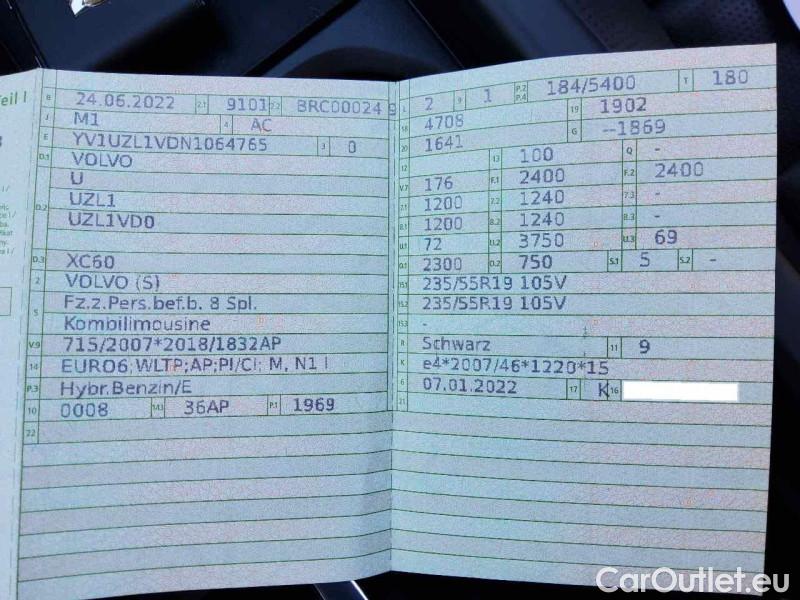 Teil I
B 24.06.2022 2.1 9101 2.2 BRC00024 9
J M1 4 AC
E YV1UZL1VDN1064765 3 0
D.1 VOLVO
U
D.2 UZL1
UZL1VD0
D.3 XC60
2 VOLVO (S)
5 Fz.z.Pers.bef.b. 8 Spl.
Kombilimousine
V.9 715/2007*2018/1832AP
14 EURO6;WLTP;AP;PI/CI; M, N1 I
P.3 Hybr.Benzin/E
10 0008 14.1 36AP P.1 1969
22
L 2 9 1 P.2 P.4 184/5400 T 180
18 4708 19 1902
20 1641 G --1869
12 13 100 Q -
V.7 176 F.1 2400 F.2 2400
7.1 1200 7.2 1240 7.3 -
8.1 1200 8.2 1240 8.3 -
U.1 72 U.2 3750 U.3 69
O.1 2300 O.2 750 S.1 5 S.2 -
15.1 235/55R19 105V
15.2 235/55R19 105V
15.3 -
R Schwarz 11 9
K e4*2007/46*1220*15
6 07.01.2022 17 K 16
21
CarOutlet.eu